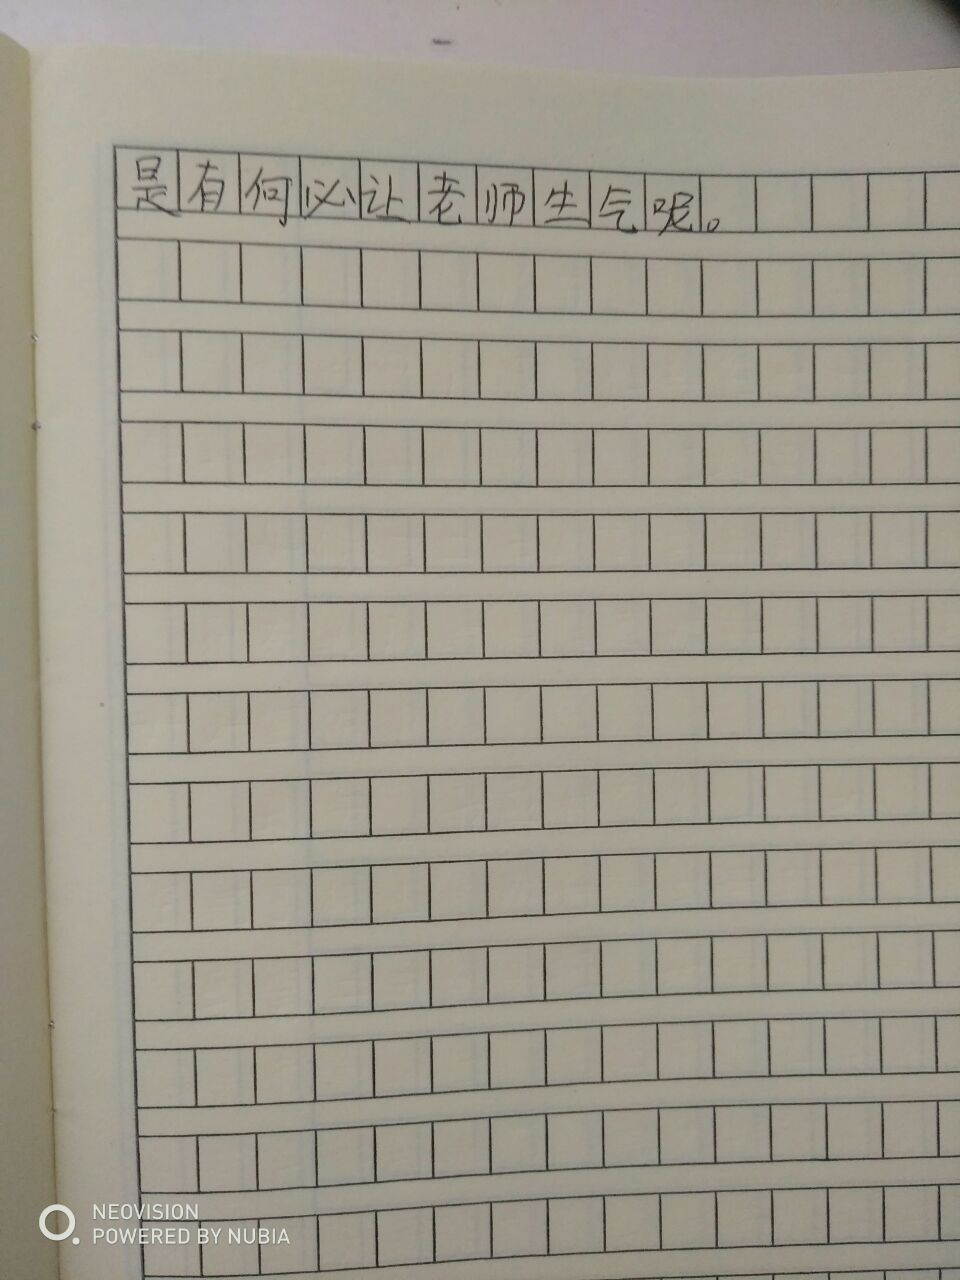 是有何必让老师生气呢。
NEOVISION
POWERED BY NUBIA